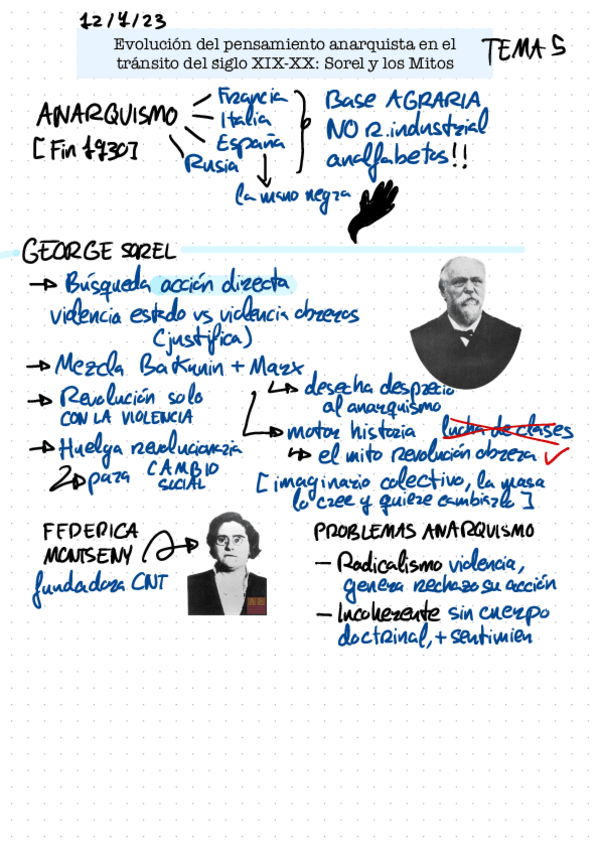 12/4/23
Evolución del pensamiento anarquista en el
tránsito del siglo XIX-XX: Sorel y los Mitos
TEMA 5
ANARQUISMO
[Fin 1930]
Francia
Italia
España
Rusia
Base AGRARIA
NO R. industrial
analfabetos!!
la mano negra
GEORGE SOREL
→ Búsqueda acción directa
violencia estado vs violencia obreros
(justifica)
→ Mezcla Bakunin + Marx
→ desecha desprecio
al anarquismo
→ motor historia lucha de clases
→ el mito revolución obrera ✓
[imaginario colectivo, la masa
lo cree y quiere cambiarlo]
→ Revolución solo
CON LA VIOLENCIA
→ Huelga revolucionaria
→ para CAMBIO
SOCIAL
FEDERICA
MONTSENY
fundadora CNT
PROBLEMAS ANARQUISMO
- Radicalismo violencia,
genera rechazo su acción
- Incoherente sin cuerpo
doctrinal, + sentimien